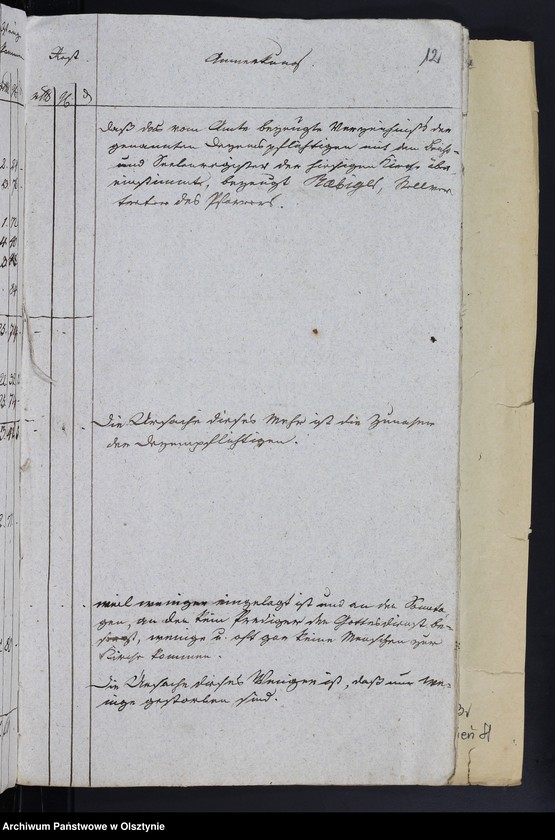 Rest.
Anmerkung.
12.
daß das vom Amte bezeugte Verzeichniß der
genannten Dezempflichtigen mit dem Beicht-
und Seelenregister der hiesigen Kirche übe
einstimmt, bezeugt Stellver
treter des Pfarrers.
Die Ursache dieses Mehr ist die Zunahme
der Dezempflichtigen.
weil weniger eingelegt ist und an den Sonnta-
gen, an den kein Prediger den Gottesdienst be-
sorgt, wenige u. oft gar keine Menschen zur
Kirche kommen.
Die Ursache dieses Weniger ist, daß nur we-
nige gestorben sind.
Archiwum Państwowe w Olsztynie